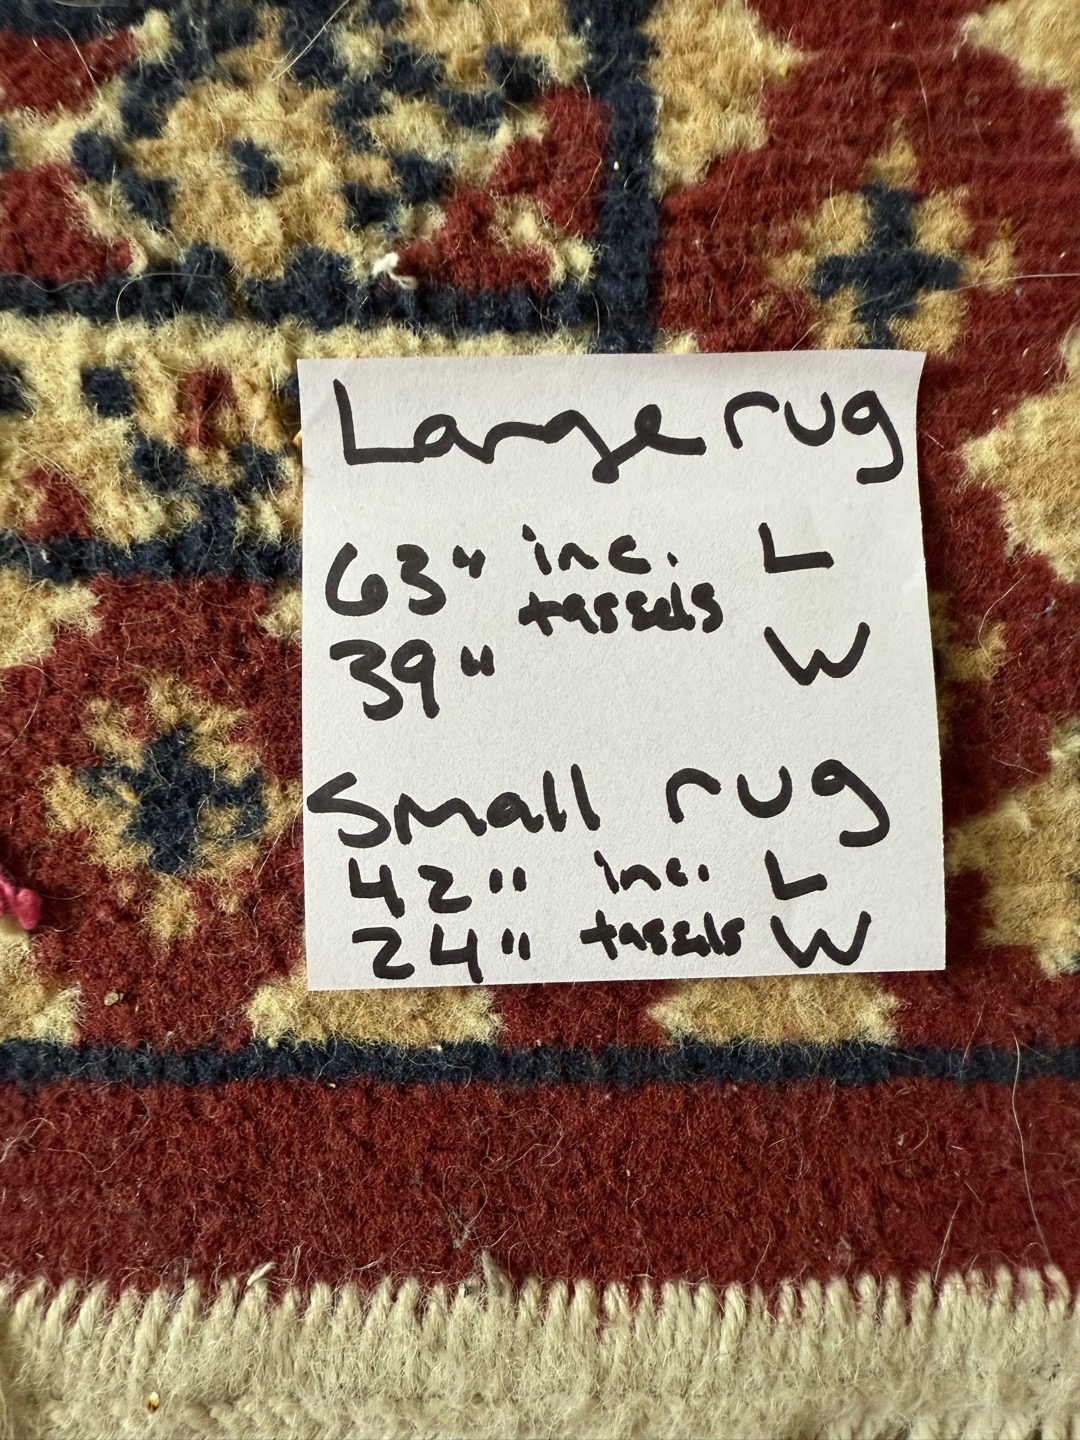 Large rug
63" inc. L
tassels
39" W
Small rug
42" inc. L
24" tassels W